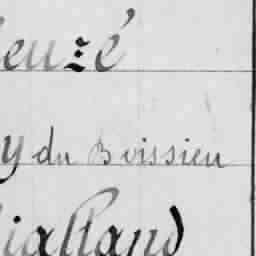 euzé
y du Boissieu
ialland